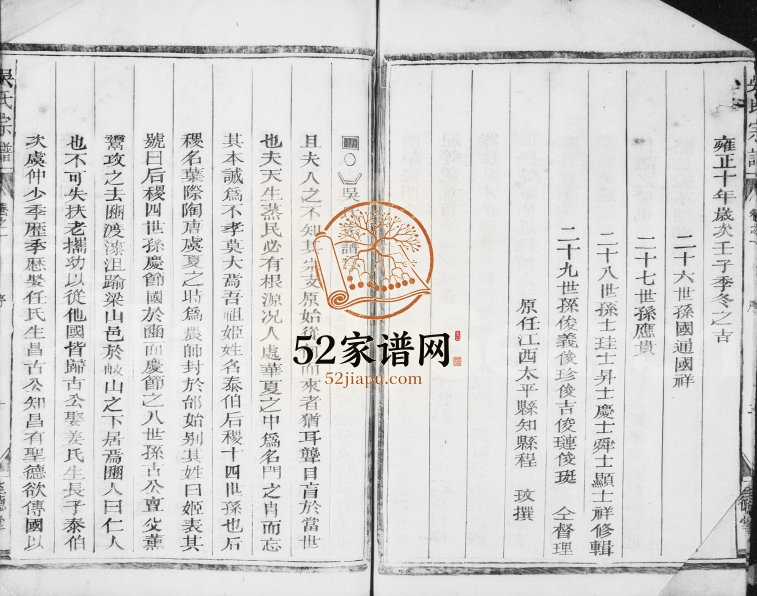 雍正十年歲次壬子季冬之吉
二十六世孫國通國祥
二十七世孫應貴
二十八世孫士珪士昇士慶士舜士顯士祥修輯
二十九世孫俊義俊珍俊吉俊璉俊珽 仝督理
原任江西太平縣知縣程 玟撰
吳氏宗譜
吳 譜
且夫人之不知其宗支原始從 而來者猶耳聾目盲於當世
也夫天生蒸民必有根源况人處華夏之中爲名門之肖而忘
其本誠爲不孝莫大焉吾祖姬姓名泰伯后稷十四世孫也后
稷名葉際陶唐虞夏之時爲農師封於邰始别其姓曰姬表其
號曰后稷四世孫慶節國於豳而慶節之八世孫古公亶父薰
鬻攻之去豳渡漆沮踰梁山邑於岐山之下居焉豳人曰仁人
也不可失扶老攜幼以從他國皆歸古公娶姜氏生長子泰伯
次虞仲少季歷季歷娶任氏生昌古公知昌有聖德欲傳國以
吳氏宗譜
卷之一
序
52家谱网
52jiapu.com